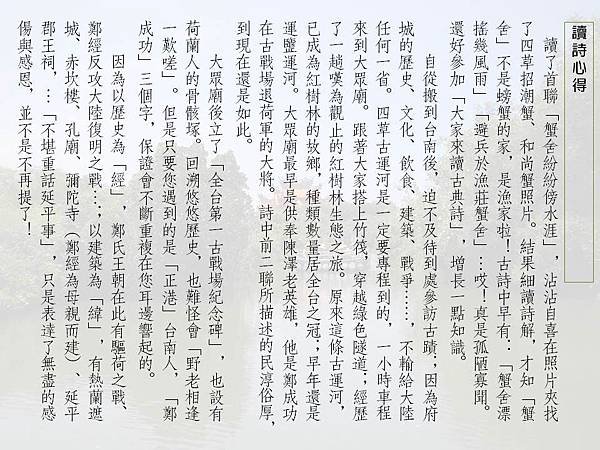 讀詩心得
讀了首聯「蟹舍紛紛傍水涯」，沾沾自喜在照片夾找
了四草招潮蟹、和尚蟹照片。結果細讀詩解，才知「蟹
舍」不是螃蟹的家，是漁家啦！古詩中早有：「蟹舍漂
搖幾風雨」「避兵於漁莊蟹舍」…哎！真是孤陋寡聞。
還好參加「大家來讀古典詩」，增長一點知識。
自從搬到台南後，迫不及待到處參訪古蹟；因為府
城的歷史、文化、飲食、建築、戰爭……，不輸給大陸
任何一省。四草古運河是一定要專程到的，一小時車程
來到大眾廟。跟著大家搭上竹筏，穿越綠色隧道；經歷
了一趟嘆為觀止的紅樹林生態之旅。原來這條古運河，
已成為紅樹林的故鄉，種類數量居全台之冠；早年還是
運鹽運河。大眾廟最早是供奉陳澤老英雄，他是鄭成功
在古戰場退荷軍的大將。詩中前二聯所描述的民淳俗厚，
到現在還是如此。
大眾廟後立了「全台第一古戰場紀念碑」，也設有
荷蘭人的骨骸塚。回溯悠悠歷史，也難怪會「野老相逢
一歎嗟」。但是只要您遇到的是「正港」台南人，「鄭
成功」三個字，保證會不斷重複在您耳邊響起的。
因為以歷史為「經」，鄭氏王朝在此有驅荷之戰、
鄭經反攻大陸復明之戰…；以建築為「緯」，有熱蘭遮
城、赤坎樓、孔廟、彌陀寺（鄭經為母親而建）、延平
郡王祠，…「不堪重話延平事」，只是表達了無盡的感
傷與感恩，並不是不再提了！